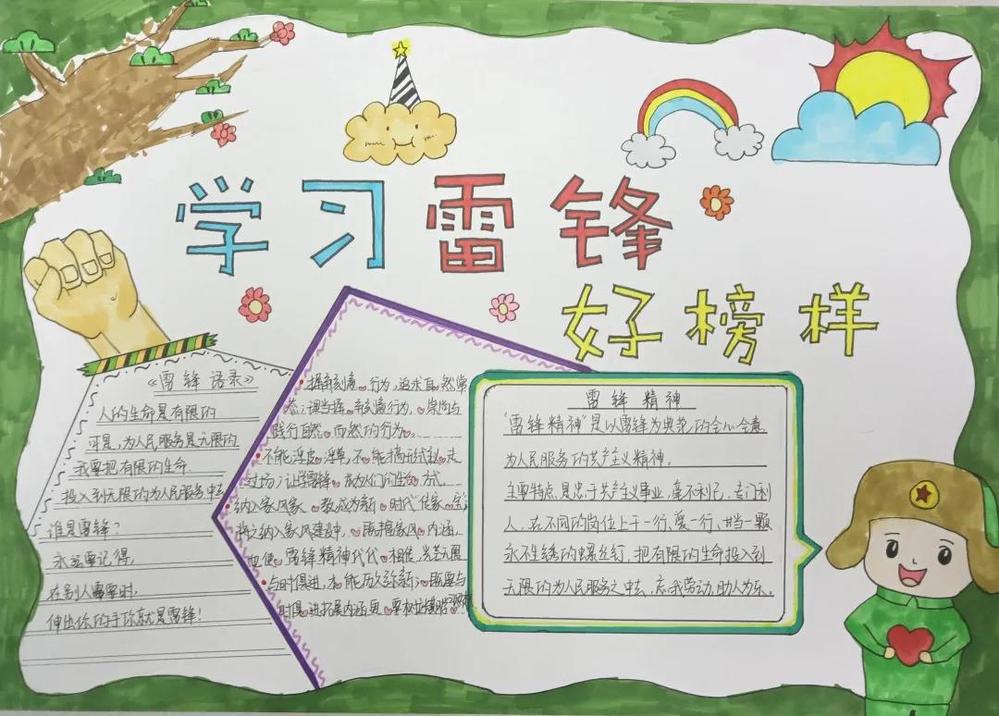 学习雷锋
好榜样
《雷锋语录》
人的生命是有限的
可是,为人民服务是无限的
我要把有限的生命
投入到无限的为人民服务中去
谁是雷锋?
永远需记得,
在别人需要时,
伸出你的手你就是雷锋!
摒弃刻意行为,追求自然常
态;调当摒弃刻意行为,崇尚与
践行自然而然的行为。
不能浮皮潦草,不能搞形式、走
过场;让学雷锋成为们的生活方式。
纳入家风家教成为新时代传家宝;
将之纳入家风建设中,既拥家风内涵,
也使雷锋精神代代相传,发芒无限
与时俱进,才能历久弥新;既要与
时俱进拓展内涵更要
雷锋精神
“雷锋精神”是以雷锋为典范的全心全意
为人民服务的共产主义精神。
主要特点是忠于共产主义事业,毫不利己,专门利
人,在不同的岗位上干一行、爱一行,甘当一颗
永不生锈的螺丝钉,把有限的生命投入到
无限的为人民服务之中去,热我劳动,助人为乐。